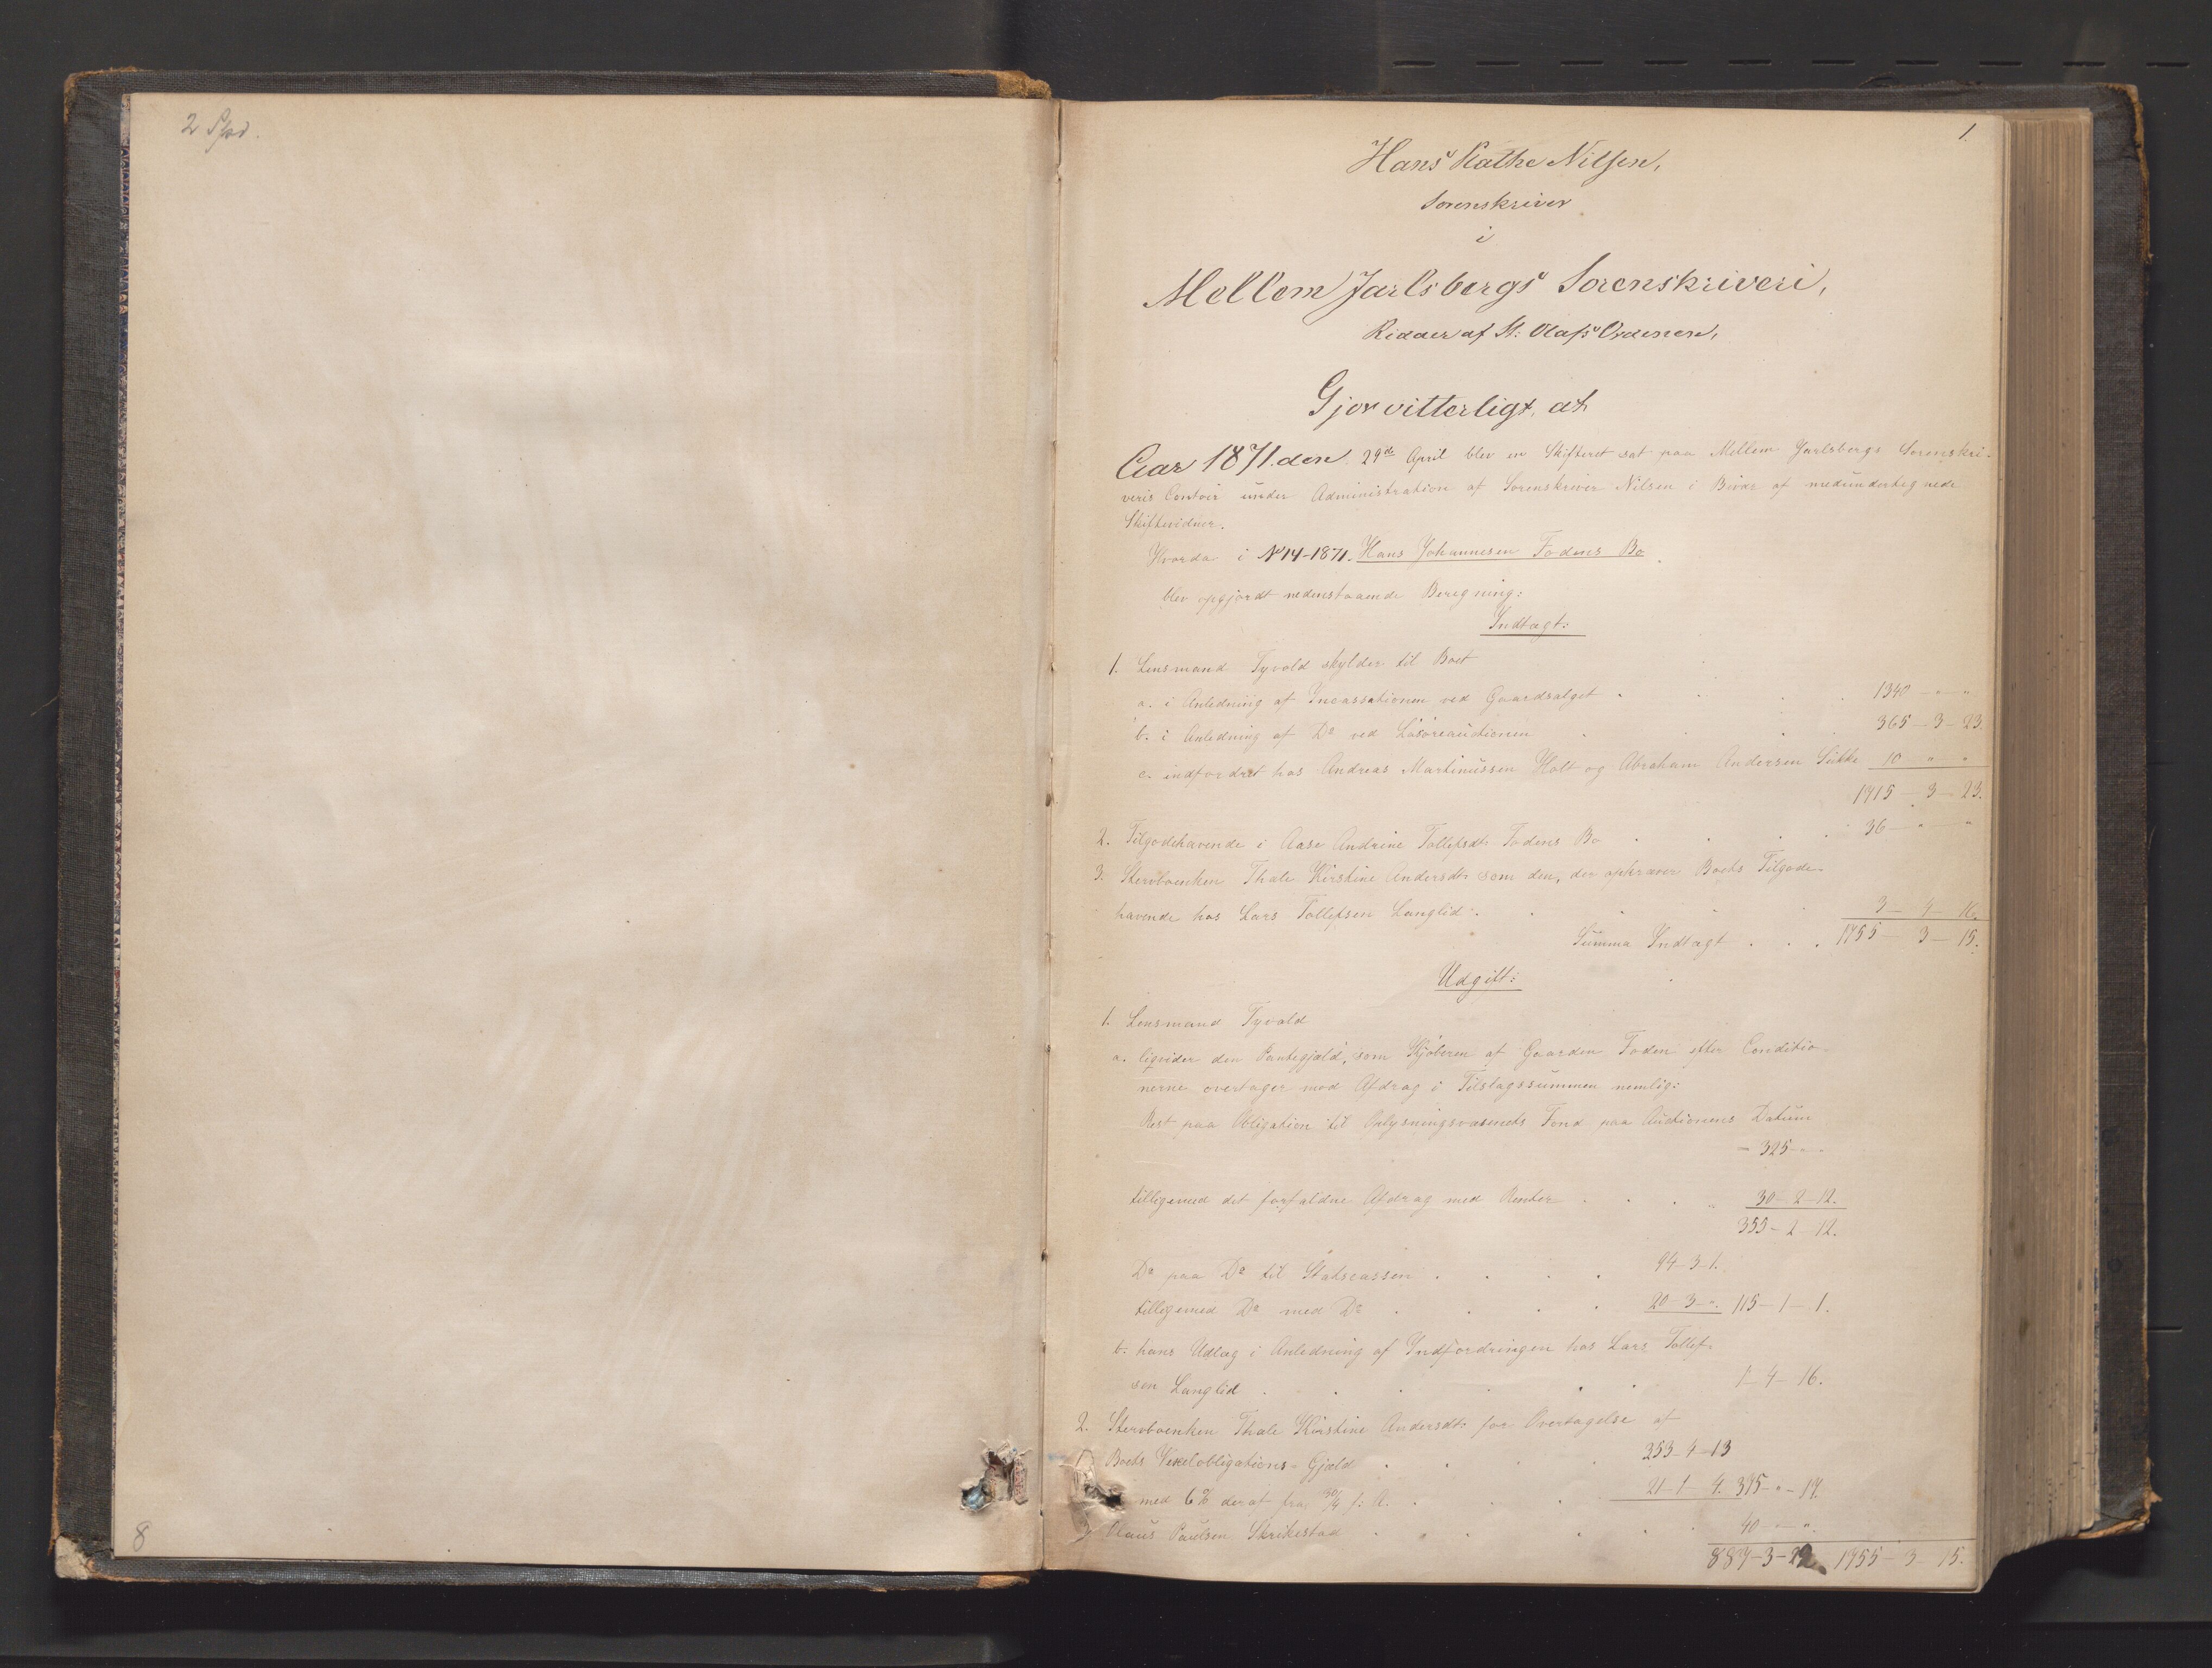 2 Spd.
8
1.
Hans Rathe Nilsen,
Sorenskriver
i
Mellem Jarlsbergs Sorenskriveri,
Ridder af St: Olafs Ordenen,
Gjør vitterligt, at
Aar 1871. den 29de April blev en Skifteret sat paa Mellem Jarlsbergs Sorenskri-
veris Contoir under Administration af Sorenskriver Nilsen i Bivær af medundertegnede
Skiftevidner.
Hvorda i No 14-1871. Hans Johannesen Fodens Bo
blev opgjordt nedenstaaende Beregning:
Indtægt:
1. Lensmand Tyvold skylder til Boet
a. i Anledning af Incassationen ved Gaardsalget 1340 - " - "
b. i Anledning af Do ved Løsøreauctionen 365 - 3 - 23.
c. indfordret hos Andreas Martinussen Holt og Abraham Andersen 10 " "
1715 - 3 - 23.
2. Tilgodehavende i Aase Andrine Tollefsdtr Fodens Bo 36 - " - "
3. Stervboenken Thale Kirstine Andersdtr som den, der opkræver Boets Tilgode-
havende hos Lars Tollefsen Langlid 3 - 4 - 16.
Summa Indtægt 1755 - 3 - 15.
Udgift:
1. Lensmand Tyvold
a. liqvider den Pantegjæld, som Kjøberen af Gaarden Foden efter Conditio-
nerne overtager mod Afdrag i Tilslagssummen nemlig:
Rest paa Obligation til Oplysningsvæsenets Fond paa Auctionens Datum
- 325 - "
tilligemed det forfaldne Afdrag med Renter 30 - 2 - 12.
355 - 2 - 12.
Do paa Do til Statscassen 94 - 3 - 1.
tilligemed Do med Do 20 - 3 - ". 115 - 1 - 1.
b. hans Udlæg i Anledning af Indfordringen hos Lars Tollef-
sen Langlid 1 - 4 - 16.
2. Stervboenken Thale Kirstine Andersdtr for Overtagelse af
Boets Vexelobligations-Gjæld 353 - 4 - 13
med 6% deraf fra 30/4 f: A. 21 - 1 - 4. 375 - " - 17.
3. Olaus Paulsen Skrikestad 40 - " - ".
887 - 3 - 22 1755 - 3 - 15.